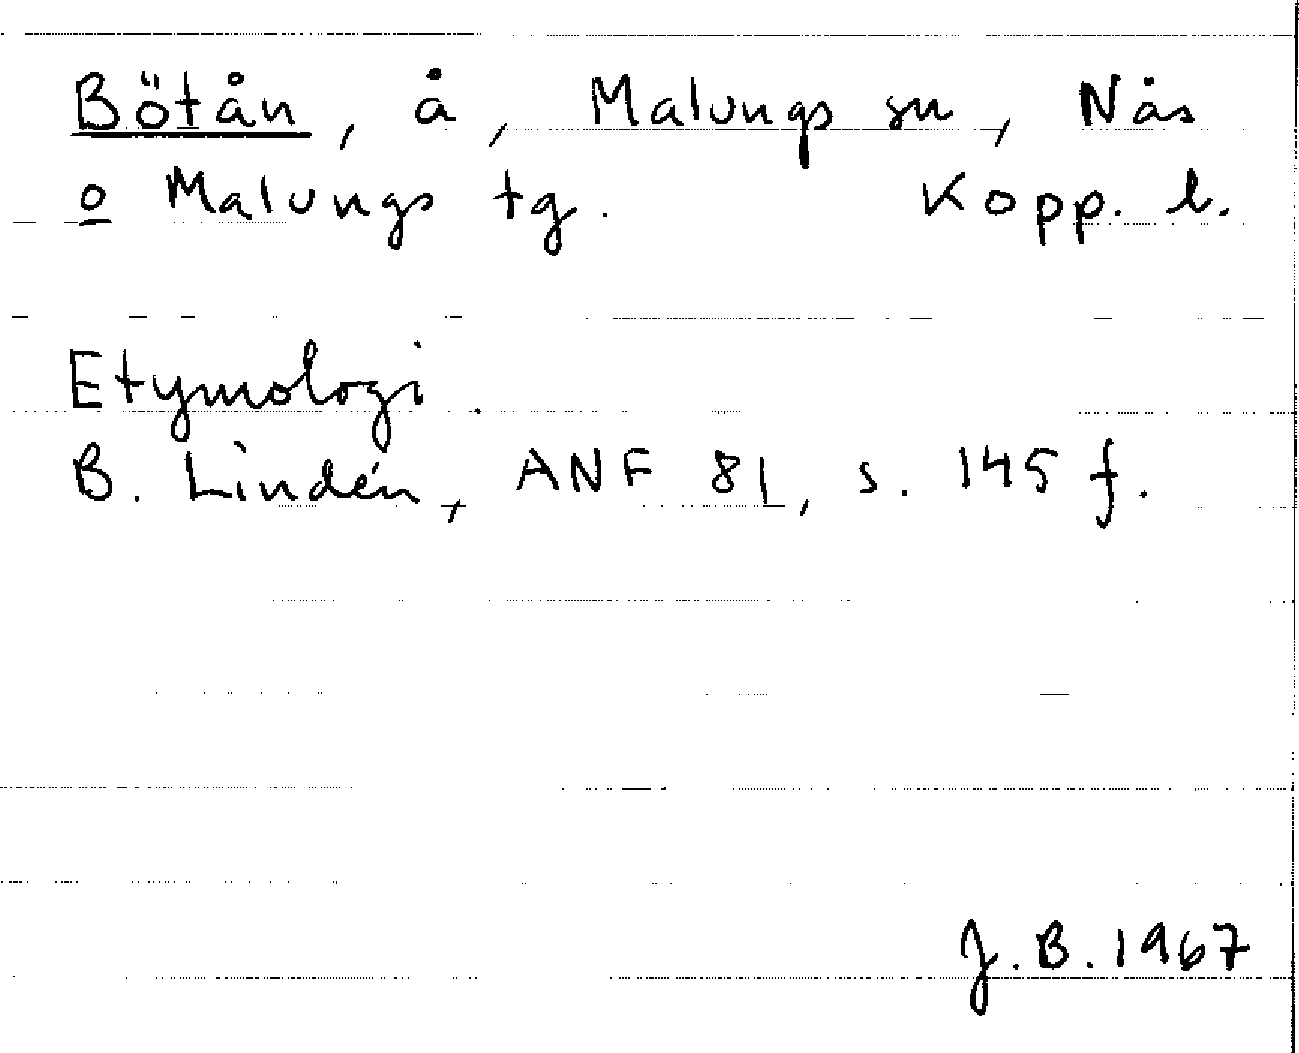 Bötån, å, Malungs sn, Nås
o Malungs tg. Kopp. l.
Etymologi.
B. Lindén, ANF 81, s. 145 f.
J.B. 1967